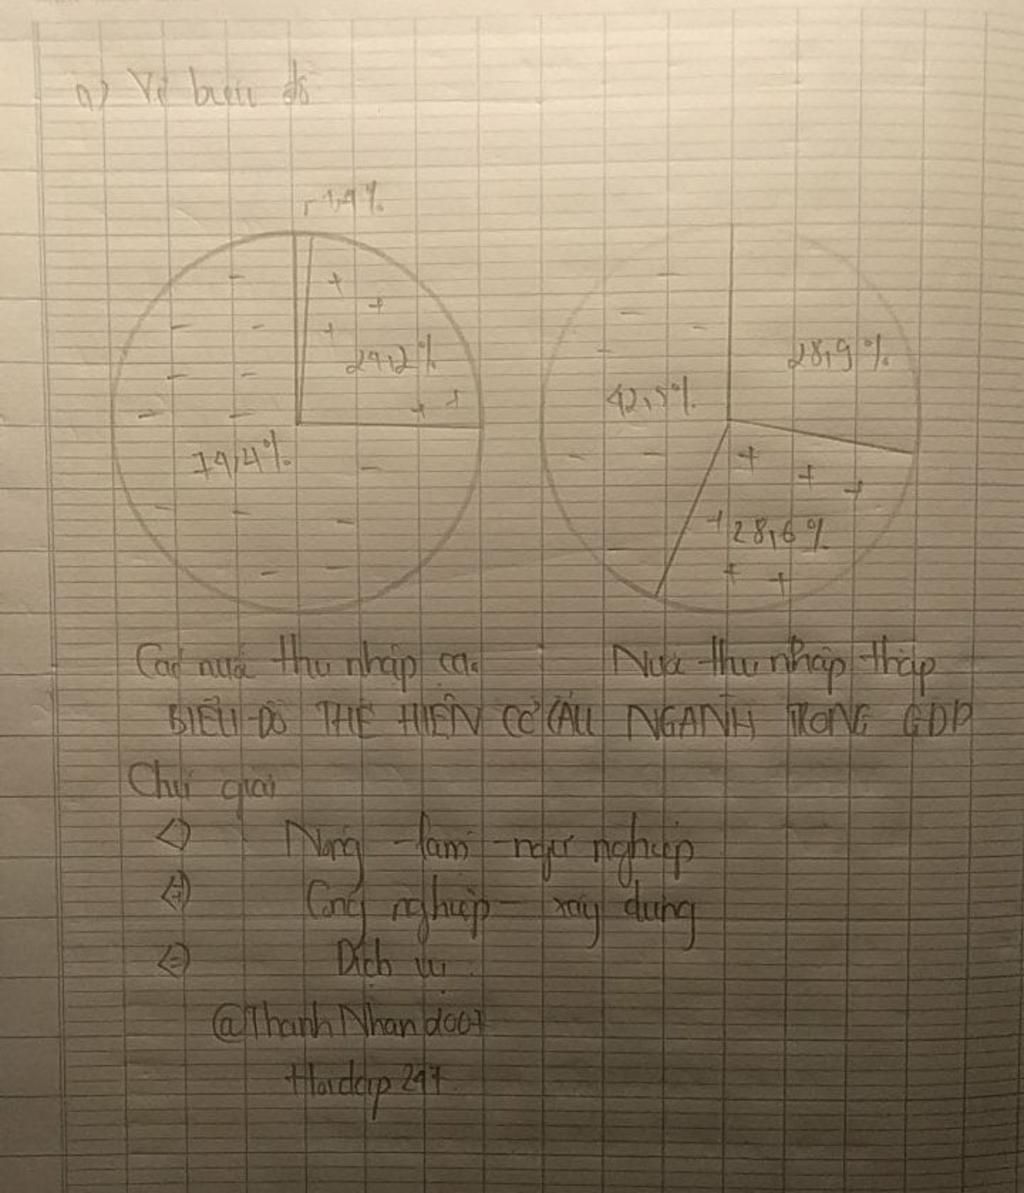 a) Vẽ biểu đồ
1,4%
24,2%
28,9%
42,5%
74,4%
28,6%
Các nước thu nhập cao
Nước thu nhập thấp
BIỂU ĐỒ THỂ HIỆN CƠ CẤU NGÀNH TRONG GDP
Chú giải
Nông - lâm - ngư nghiệp
Công nghiệp - xây dựng
Dịch vụ
@ThanhNhan2007
Hoidap247